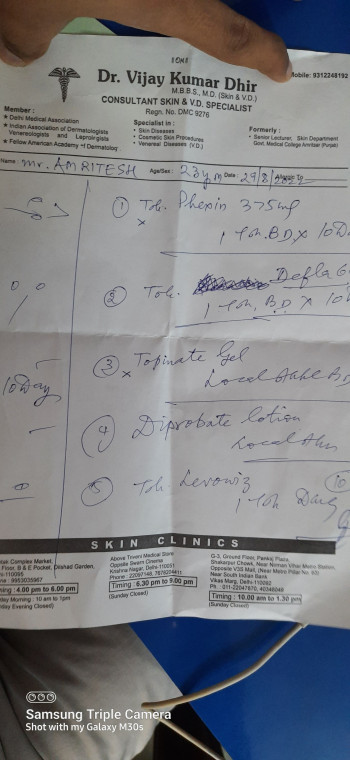 Mobile: 9312248192
Dr. Vijay Kumar Dhir
M.B.B.S., M.D. (Skin & V.D.)
CONSULTANT SKIN & V.D. SPECIALIST
Regn. No. DMC 9276
Member :
★ Delhi Medical Association
★ Indian Association of Dermatologists
Venereologists and Leprologists
★ Fellow American Academy of Dermatology
Specialist in :
• Skin Diseases
• Cosmetic Skin Procedures
• Venereal Diseases (V.D.)
Formerly :
• Senior Lecturer, Skin Department
Govt. Medical College Amritsar (Punjab)
Name : Mr. AMRITESH Age/Sex : 23y m Date : 29/8/2022
① Tab. Phexin 375mg
1 Tab. BD X 10 Da
② Tab. Defla 6
1 Tab. B.D X 10
③ Topinate Gel
Local BD
10 Day
④ Diprobate lotion
Local
⑤ Tab Levowiz
1 Tab Daily
10
SKIN CLINICS
Complex Market,
Floor, B & E Pocket, Dilshad Garden,
-110095
9953035967
Timing : 4.00 pm to 6.00 pm
day Morning : 10 am to 1pm
day Evening Closed)
Above Triveni Medical Store
Opposite Swarn Cinema
Krishna Nagar, Delhi-110051
Timing : 6.30 pm to 9.00 pm
(Sunday Closed)
G-3, Ground Floor, Pankaj Plaza,
Shakarpur Chowk, Near Nirman Vihar Metro Station,
Opposite V3S Mall, (Near Metro Pillar No. 50)
Near South Indian Bank
Vikas Marg, Delhi-110092
Ph : 011-22047670, 40346049
Timing : 10.00 am to 1.30 pm
(Sunday Closed)
Samsung Triple Camera
Shot with my Galaxy M30s